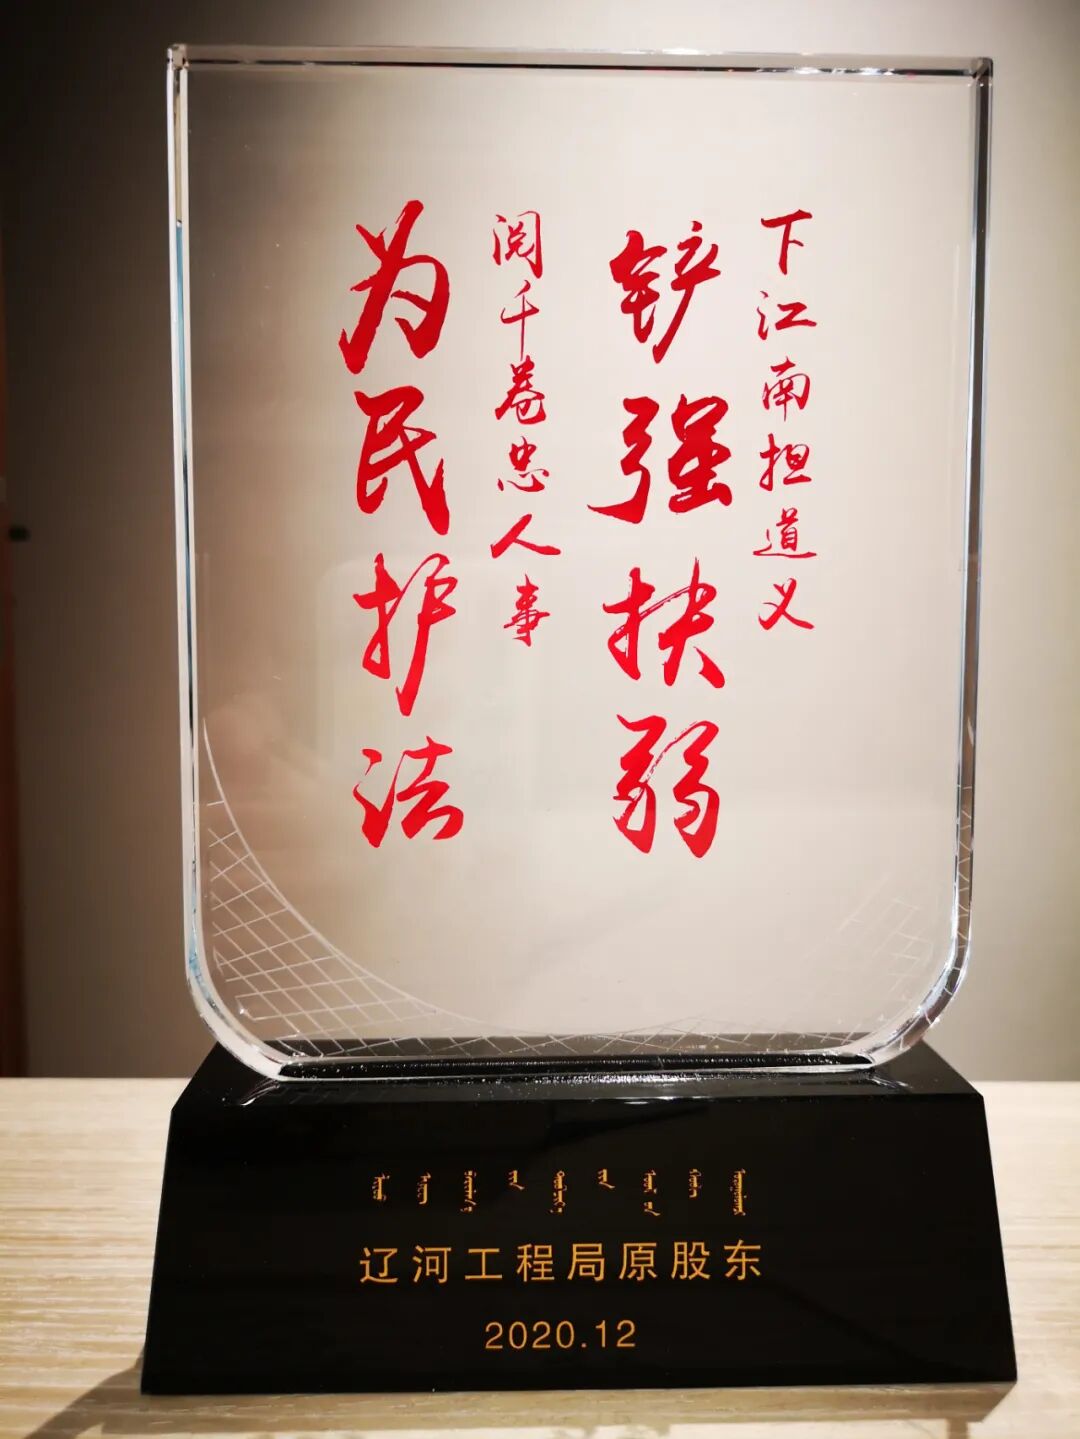 下江南担道义
铲强扶弱
阅千卷忠人事
为民护法
辽河工程局原股东
2020.12